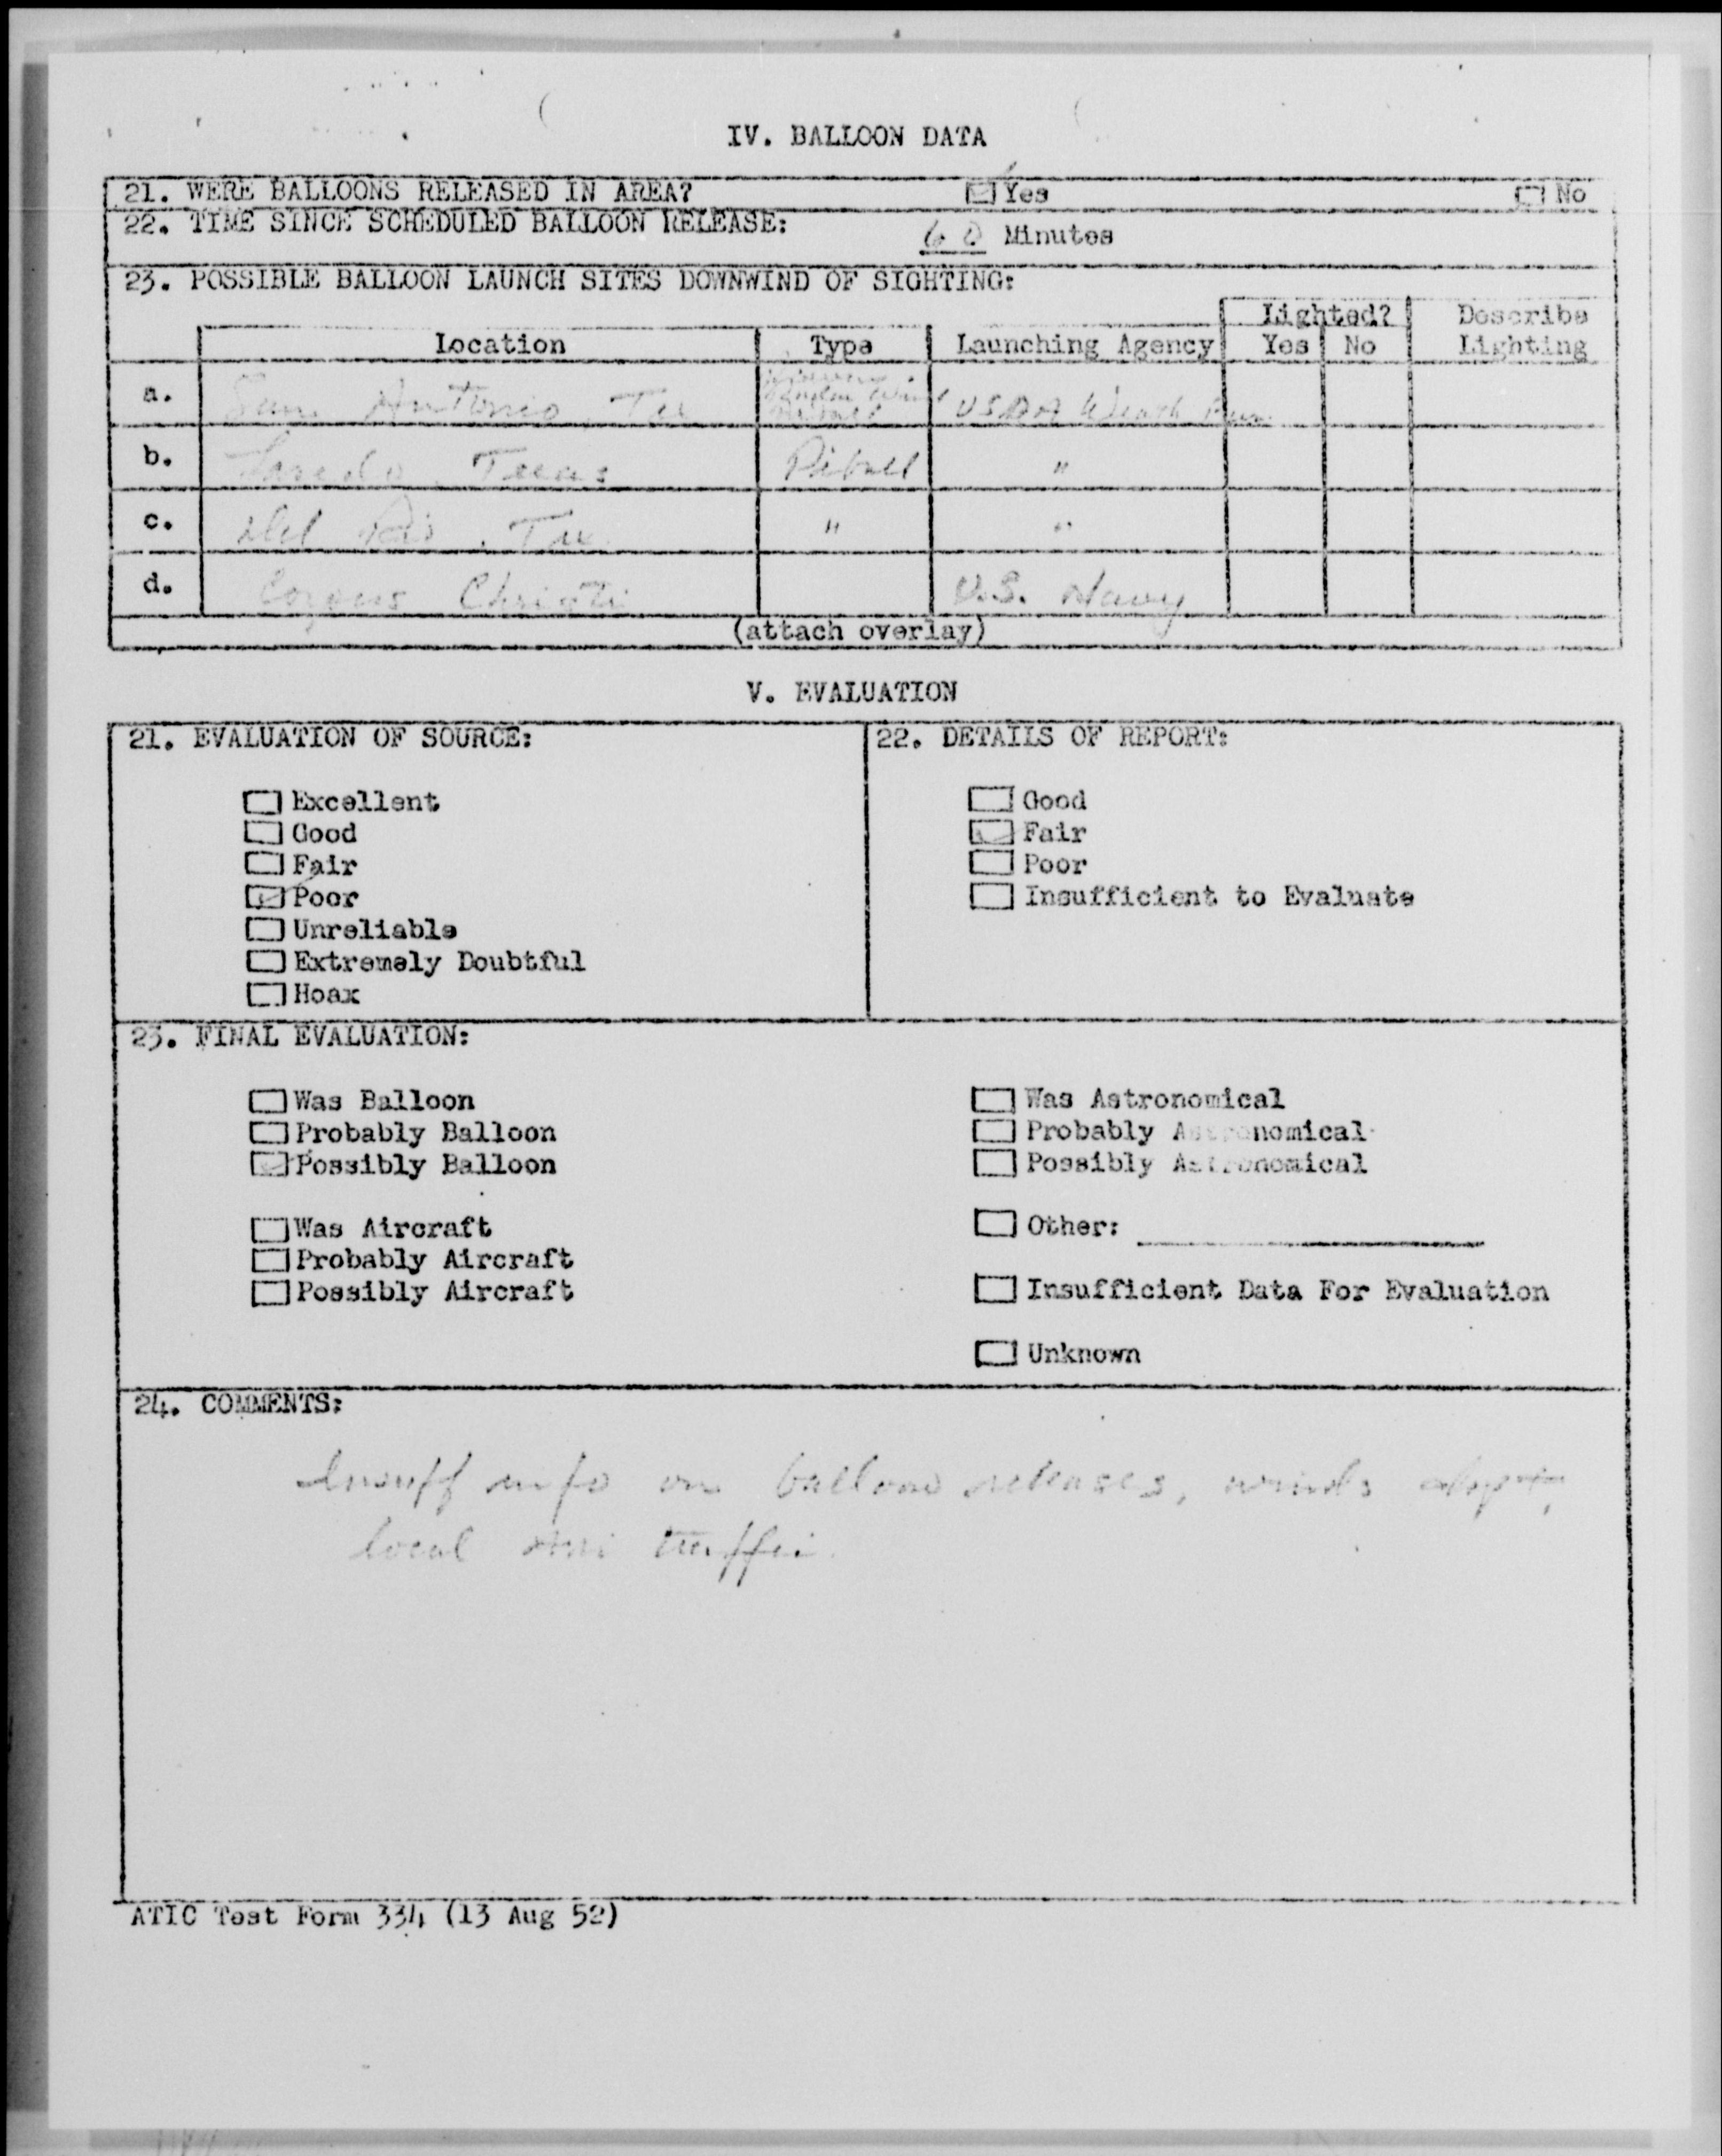 IV. BALLOON DATA
21. WERE BALLOONS RELEASED IN AREA? Yes No
22. TIME SINCE SCHEDULED BALLOON RELEASE: 60 Minutes
23. POSSIBLE BALLOON LAUNCH SITES DOWNWIND OF SIGHTING:
Lighted? Describe
Location Type Launching Agency Yes No Lighting
a. San Antonio, Tex USDA Weath Bur.
b. Laredo, Texas Pibal "
c. Del Rio, Tex. " "
d. Corpus Christi U.S. Navy
(attach overlay)
V. EVALUATION
21. EVALUATION OF SOURCE: 22. DETAILS OF REPORT:
Excellent Good
Good Fair
Fair Poor
Poor Insufficient to Evaluate
Unreliable
Extremely Doubtful
Hoax
23. FINAL EVALUATION:
Was Balloon Was Astronomical
Probably Balloon Probably Astronomical
Possibly Balloon Possibly Astronomical
Was Aircraft Other:
Probably Aircraft
Possibly Aircraft Insufficient Data For Evaluation
Unknown
24. COMMENTS:
Insuff info on balloon releases, winds
local traffic
ATIC Test Form 334 (13 Aug 52)